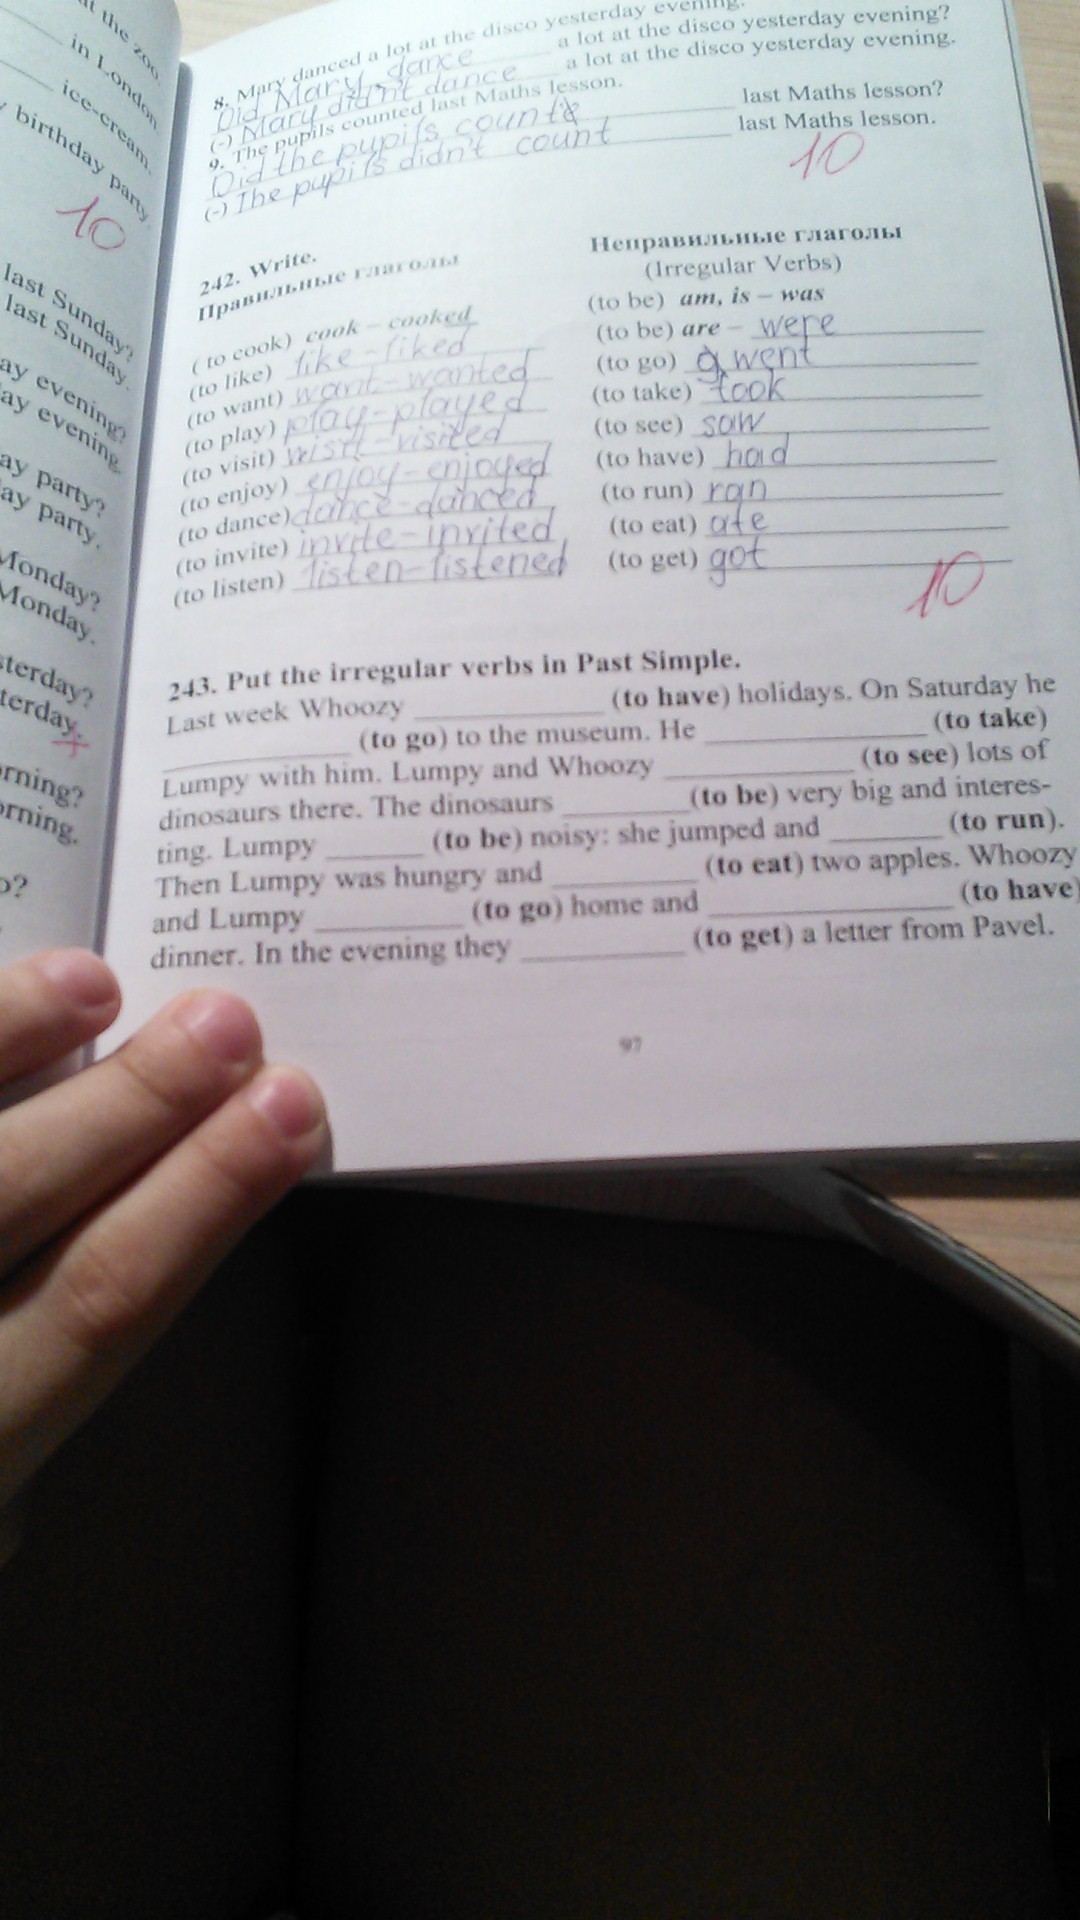 at the zoo.
in London
ice-cream.
birthday party
10
last Sunday?
last Sunday.
ay evening?
ay evening.
ay party?
ay party.
Monday?
Monday.
sterday?
terday.
+
rning?
orning.
o?
8. Mary danced a lot at the disco yesterday evening.
Did Mary dance a lot at the disco yesterday evening?
(-) Mary didn't dance a lot at the disco yesterday evening.
9. The pupils counted last Maths lesson.
Did the pupils count last Maths lesson?
(-) The pupils didn't count last Maths lesson.
10
242. Write.
Правильные глаголы
( to cook) cook – cooked
(to like) like - liked
(to want) want - wanted
(to play) play - played
(to visit) visit - visited
(to enjoy) enjoy - enjoyed
(to dance) dance - danced
(to invite) invite - invited
(to listen) listen - listened
Неправильные глаголы
(Irregular Verbs)
(to be) am, is – was
(to be) are – were
(to go) went
(to take) took
(to see) saw
(to have) had
(to run) ran
(to eat) ate
(to get) got
10
243. Put the irregular verbs in Past Simple.
Last week Whoozy ____________ (to have) holidays. On Saturday he
____________ (to go) to the museum. He ____________ (to take)
Lumpy with him. Lumpy and Whoozy ____________ (to see) lots of
dinosaurs there. The dinosaurs ________ (to be) very big and interes-
ting. Lumpy ______ (to be) noisy: she jumped and _______ (to run).
Then Lumpy was hungry and _________ (to eat) two apples. Whoozy
and Lumpy _________ (to go) home and ______________ (to have)
dinner. In the evening they __________ (to get) a letter from Pavel.
97